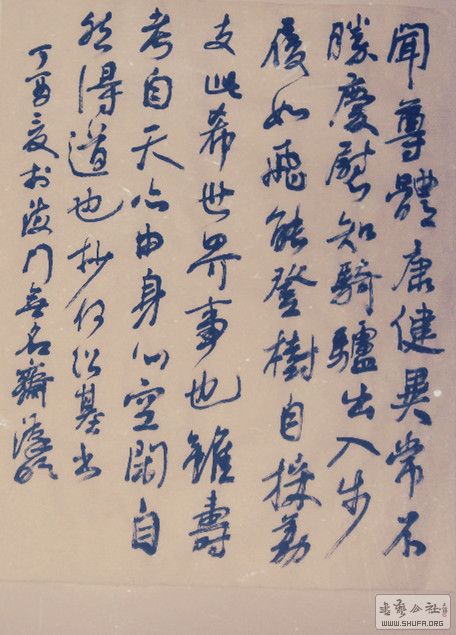 聞尊體康健異常不
勝慶慰知騎驢出入步
履如飛能登樹自採荔
支此希世界事也雖壽
考自天亦由身心空閑自
然得道也抄何紹基書
丁酉夏於海門無名齋
書藝公社
WWW.SHUFA.ORG